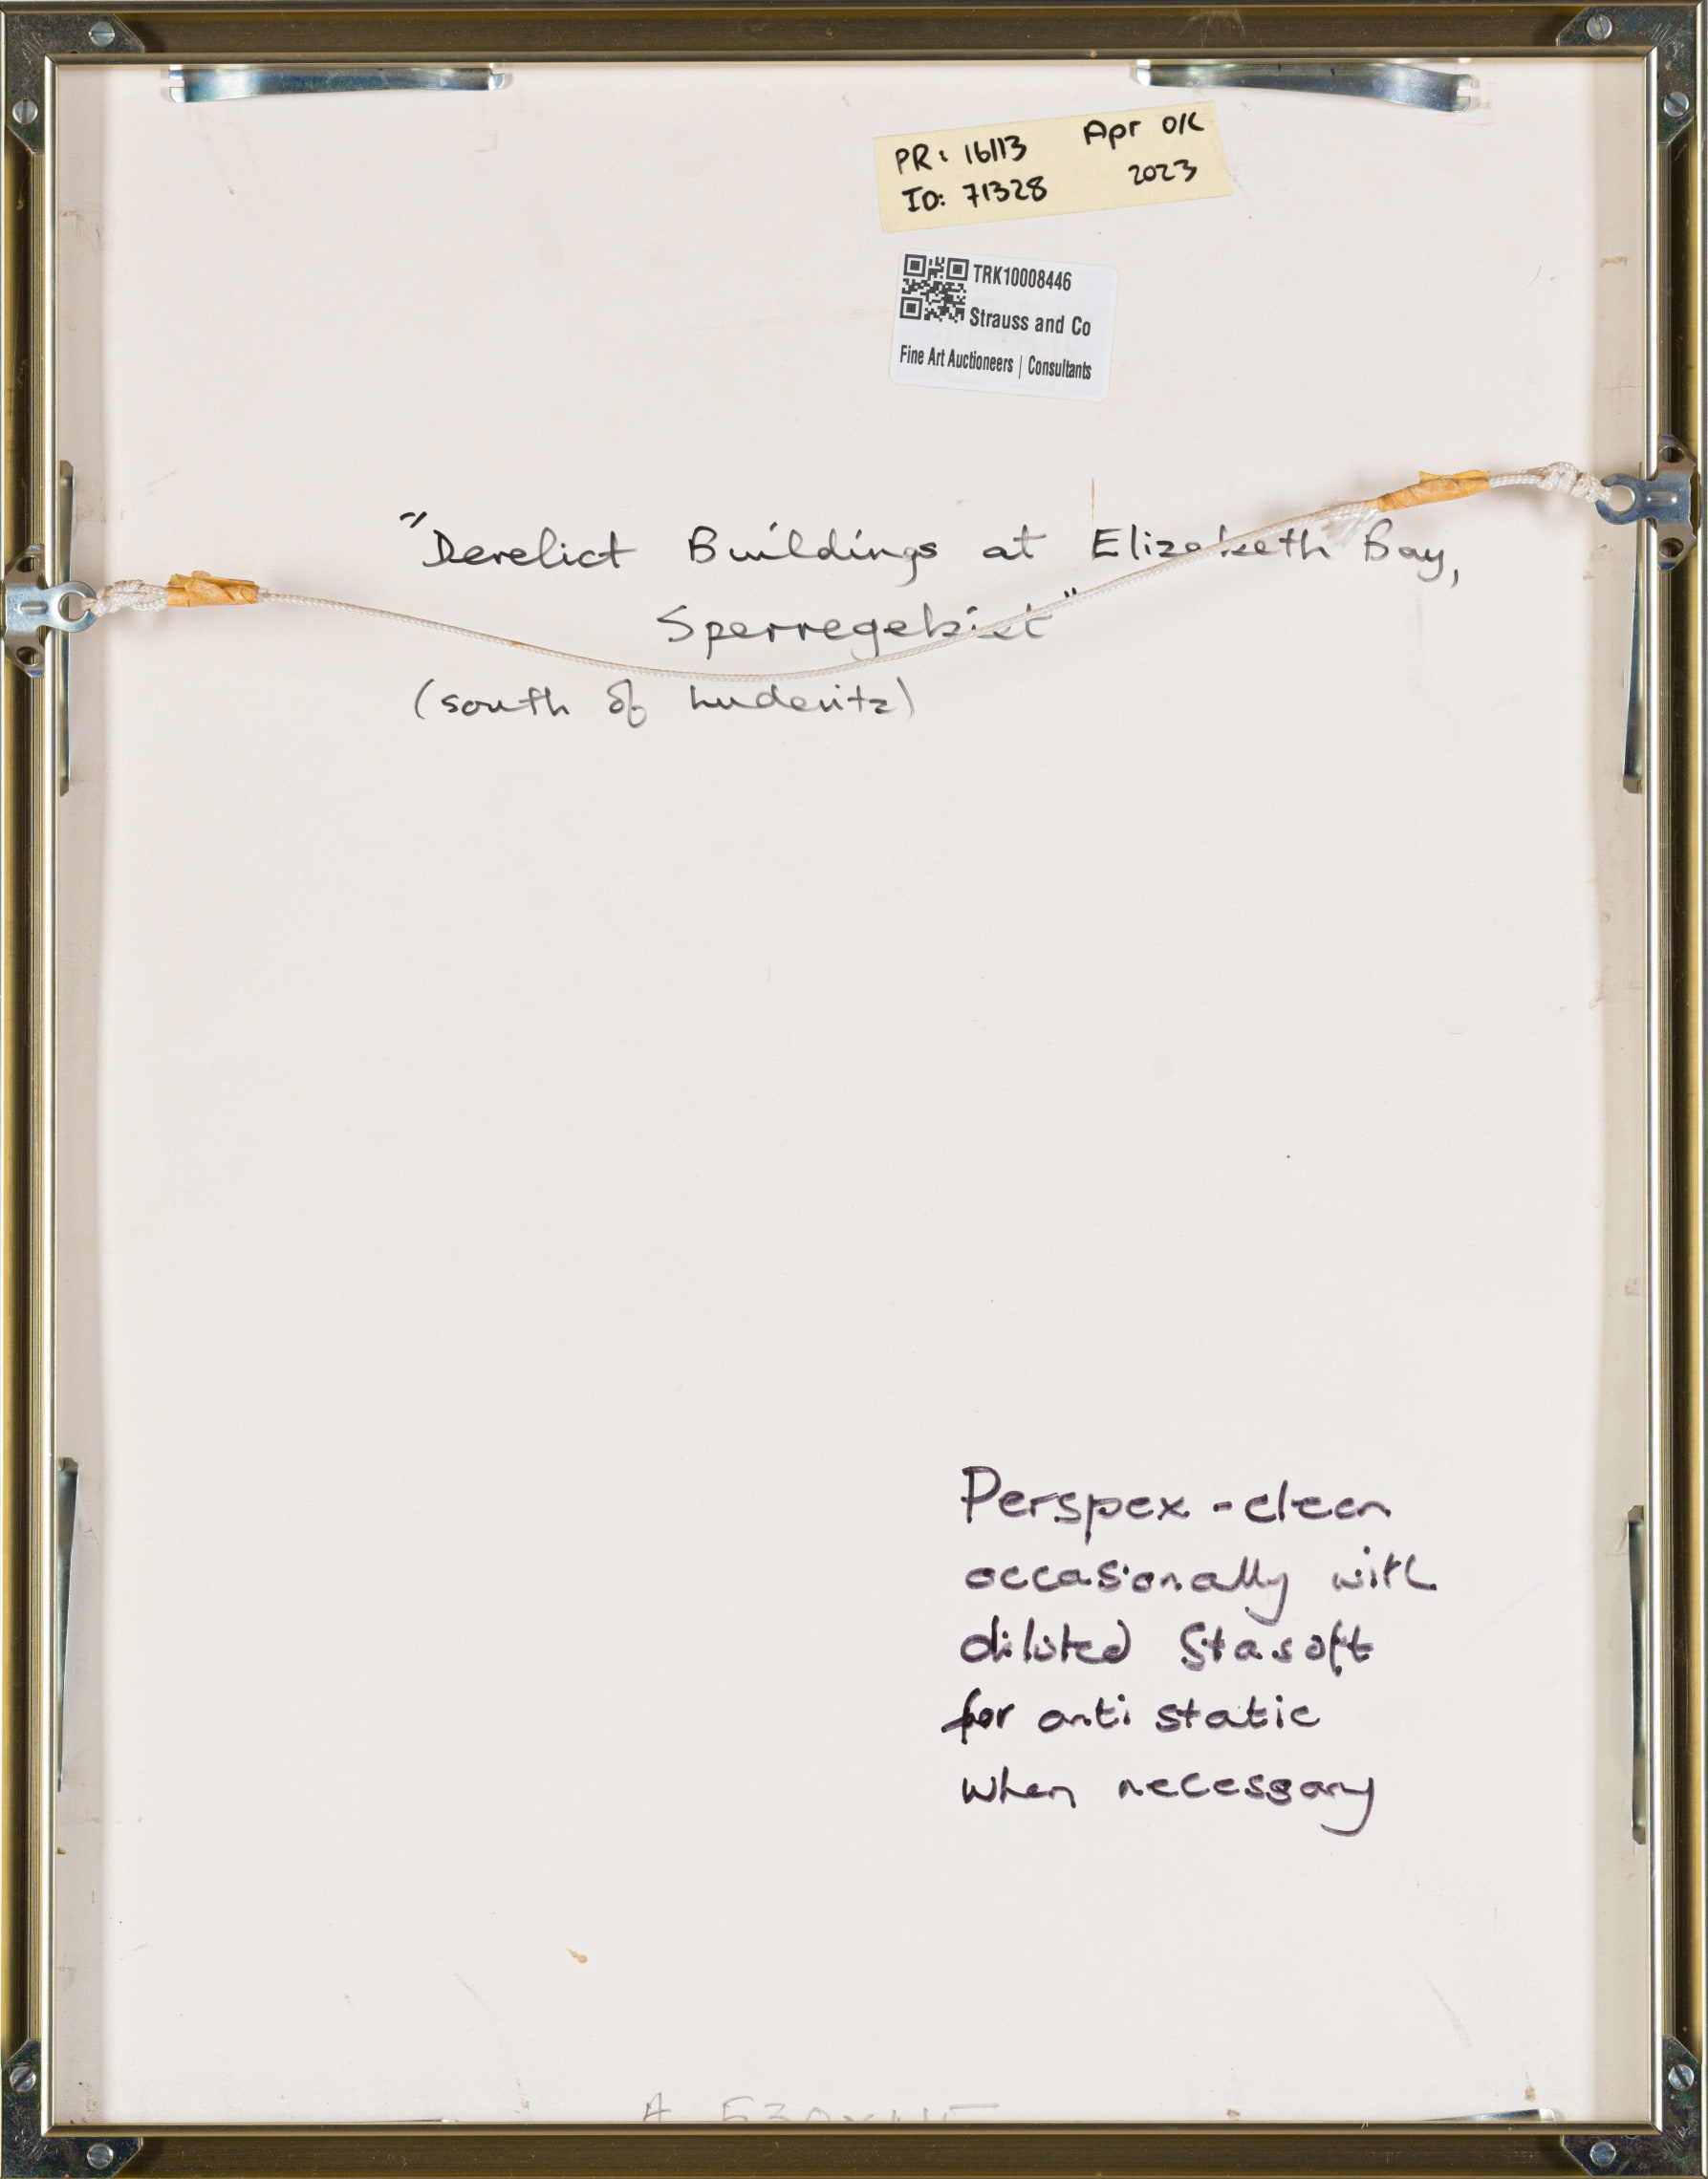 PR: 16113 Apr O/L
ID: 71328 2023
TRK10008446
Strauss and Co
Fine Art Auctioneers | Consultants
"Derelict Buildings at Elizabeth Bay,
Sperregebiet"
(south of Luderitz)
Perspex - clean
occasionally with
diluted Stasoft
for anti static
when necessary